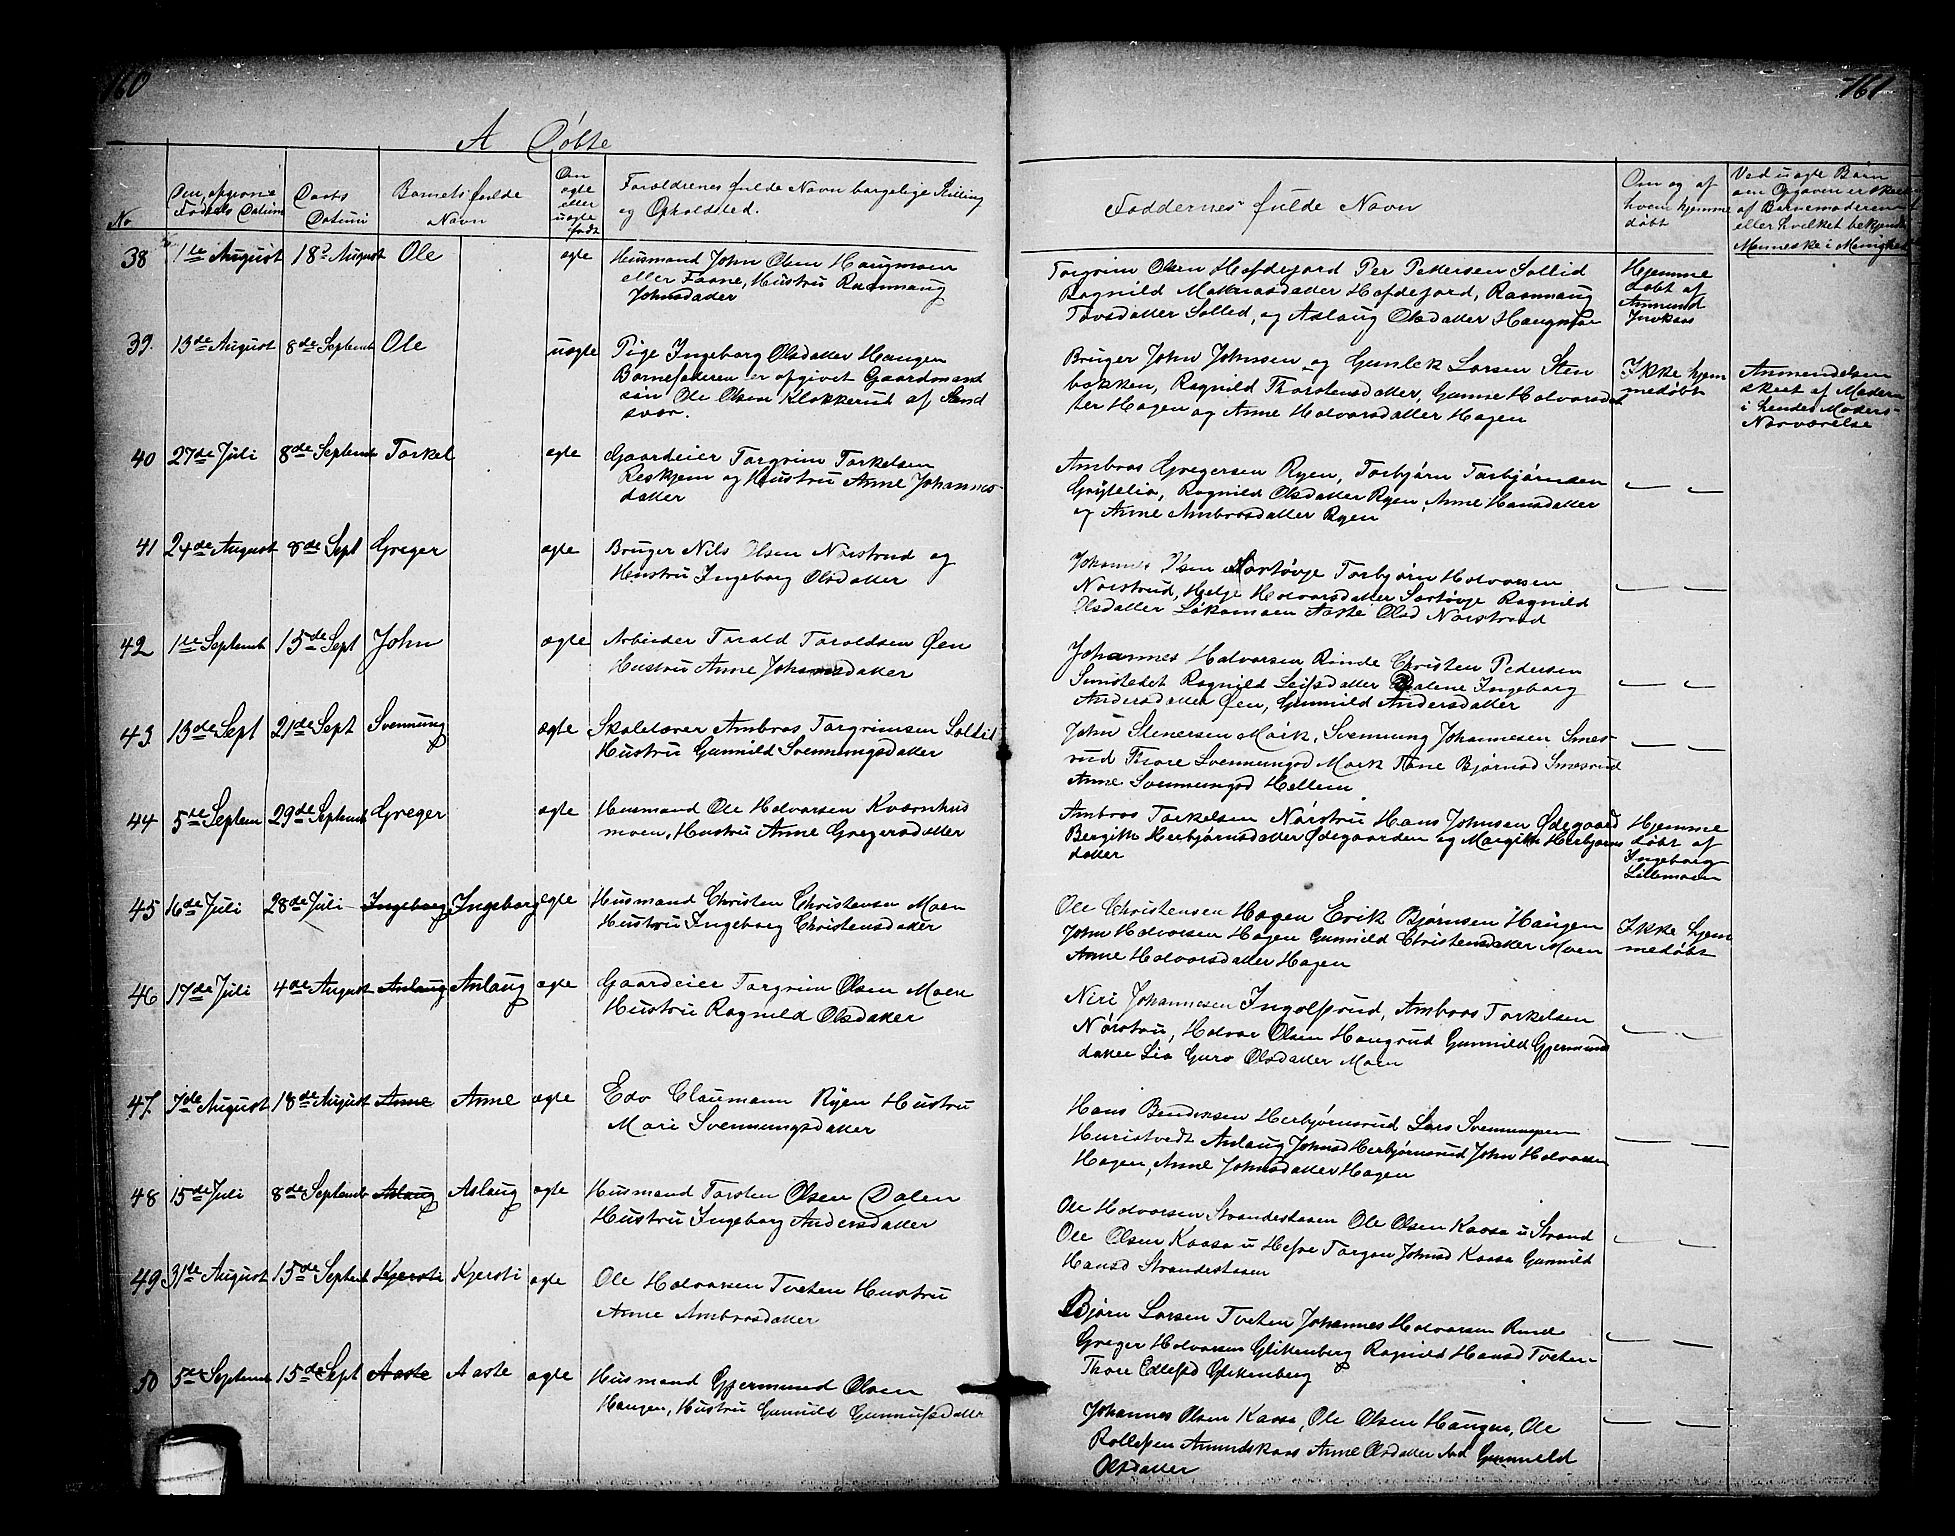 160
161
A Døbte
No
Fødsels Datum
Daabs Datum
Barnets fulde Navn
Om ægte eller uægte født
Forældrenes fulde Navn borgelige Stilling
og Opholdsted.
Faddernes fulde Navn
Om og af
hvem hjemme
døbt
Ved uægte Børn
om Opgaven er skeet
af Barnemoderen
eller hvilket bekjendt
Menneske i Menighed
38 1te August 18de August Ole ægte Husmand John Olsen Haugmoen
eller Faane, Hustru Rannaug
Johnsdatter
Torgrim Olsen Hofdejord Per Pettersen Sollid
Ragnild Mathiasdatter Hofdejord, Rannaug
Tovsdatter Sollid, og Aslaug Olsdatter Haugmoe
Hjemme
døbt af
Anmund
39. 13de August 8de Septemb Ole uægte Pige Ingeborg Olsdatter Haugen
Barnefaderen er opgivet Gaardmand
søn Ole Olsen Klokkerud af Sand
svær.
Bruger John Johnsen og Gunlek Larsen Sten
bakken, Ragnild Thorstensdatter, Gunne Halvorsdat
ter Hagen og Anne Halvorsdatter Hagen
Ikke hjem
medøbt
Anmeldelsen
skeet af Modern
i hendes Moders
Nærværelse
40 27de Juli 8de Septemb Torkel ægte Gaardeier Torgrim Torkelsen
Reskjem og Hustru Anne Johannes-
datter
Ambros Gregersen Ryen, Torbjørn Torbjørnsen
Grytelia, Ragnild Olsdatter Ryen, Anne Hansdatter
og Anne Ambrosdatter Ryen
— —
41 24de August 8de Sept Greger ægte Bruger Nils Olsen Nørstrud og
Hustru Ingeborg Olsdatter
Johannes Olsen Sortøvje Torbjørn Halvorsen
Nørstrud, Helje Halvorsdatter Sortøvje Ragnild
Olsdatter Løkamoen Aaste Olsd Nørstrud
— —
42 1te Septemb 15de Sept John ægte Arbieder Torald Toraldsen Øen
Hustru Anne Johannesdatter
Johannes Halvorsen Rinde Christen Pedersen
Sunstedet Ragnild Leifsdatter Dalene Ingeborg
Andersdatter Øen, Gunnild Andersdatter
— —
43 13de Sept 21de Sept Svennung ægte Skolelærer Ambros Torgrimsen Sollid
Hustru Gunnild Svennungsdatter
John Stenersen Mørk, Svennung Johannesen Smes-
rud Thore Svennungsd Mørk Tone Bjørnsd Smesrud
Anne Svennungsd Hellem
— —
44 5te Septem 29de Septemb Greger ægte Husmand Ole Halvorsen Kværnhus
moen, Hustru Anne Gregersdatter
Ambros Torkelsen Nørstru Hans Johnsen Ødegaard
Bergitte Herbjørnsdatter Ødegaarden og Margitte Herbjørns
datter
Hjemme
døbt af
Ingeborg
Lillemoen
45 16de Juli 28de Juli Ingeborg Ingeborg ægte Husmand Christen Christensen Moen
Hustru Ingeborg Christensdatter
Ole Christensen Hagen Erik Bjørnsen Haugen
John Halvorsen Hagen Gunnild Christensdatter Moen
Anne Halvorsdatter Hagen
Ikke hjem
medøbt
46 17de Juli 4de August Anlaug Anlaug ægte Gaardeier Torgrim Olsen Moen
Hustru Ragnild Olsdatter
Niri Johannesen Ingolfsrud, Ambros Torkelsen
Nørstru, Halvor Olsen Haugrud Gunnild Gjermund
datter Lia Guro Olsdatter Moen
— —
47. 7de August 18de August Anne Anne ægte Edv Claumann Ryen Hustru
Mari Svennungsdatter
Hans Bendixsen Herbjørnsrud Lars Svennungsen
Huristvedt Anlaug Johnsd Herbjørnsrud John Halvorsen
Hagen, Anne Johnsdatter Hagen
— —
48 15de Juli 8de Septemb Aslaug Aslaug ægte Husmand Torsten Olsen Dalen
Hustru Ingeborg Andersdatter
Ole Halvorsen Strandestaaen Ole Olsen Kaasa u Strand
Ole Olsen Kaasa u Hefre Torgon Johnsd Kaasa Gunnild
Hansd Strandestaaen
— —
49 31te August 15de Septemb Kjersti Kjersti ægte Ole Halvorsen Tveten Hustru
Anne Ambrosdatter
Bjørn Larsen Tveten Johannes Halvorsen Rinde
Greger Halvorsen Glittenberg Ragnild Hansd Tveten-
Thore Glittenberg
— —
50 5te Septemb 15de Sept Aaste Aaste ægte Husmand Gjermund Olsen
Haugen, Hustru Gunnild Gunnulfsdatter
Johannes Olsen Kaasa, Ole Olsen Haugen, Ole
Rollefsen Amundskaas Anne Olsdatter Gunnild
Olsdatter
— —